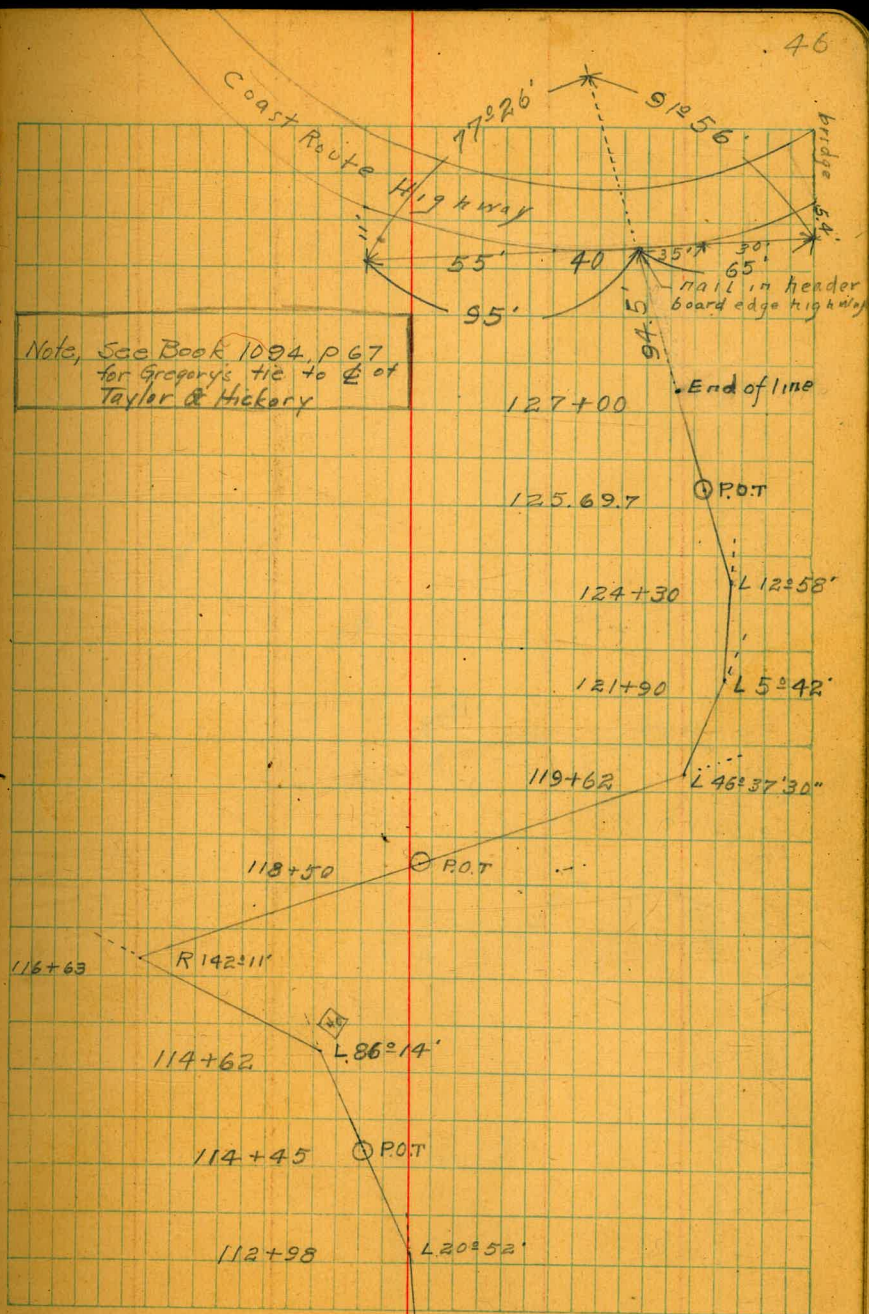 46
Coast Route Highway
77º26'
91º56'
bridge
5.4'
11'
55'
40
35'
30'
65'
95'
nail in header
board edge highway
94.5'
Note, See Book 1094, P 67
for Gregorys tie to ₵ of
Taylor & Hickory
End of line
127+00
125.69.7
P.O.T
124+30
L 12º58'
121+90
L 5º42'
119+62
L 46º37'30"
118+50
P.O.T
116+63
R 142º11'
114+62
L 86º14'
114+45
P.O.T
112+98
L 20º52'